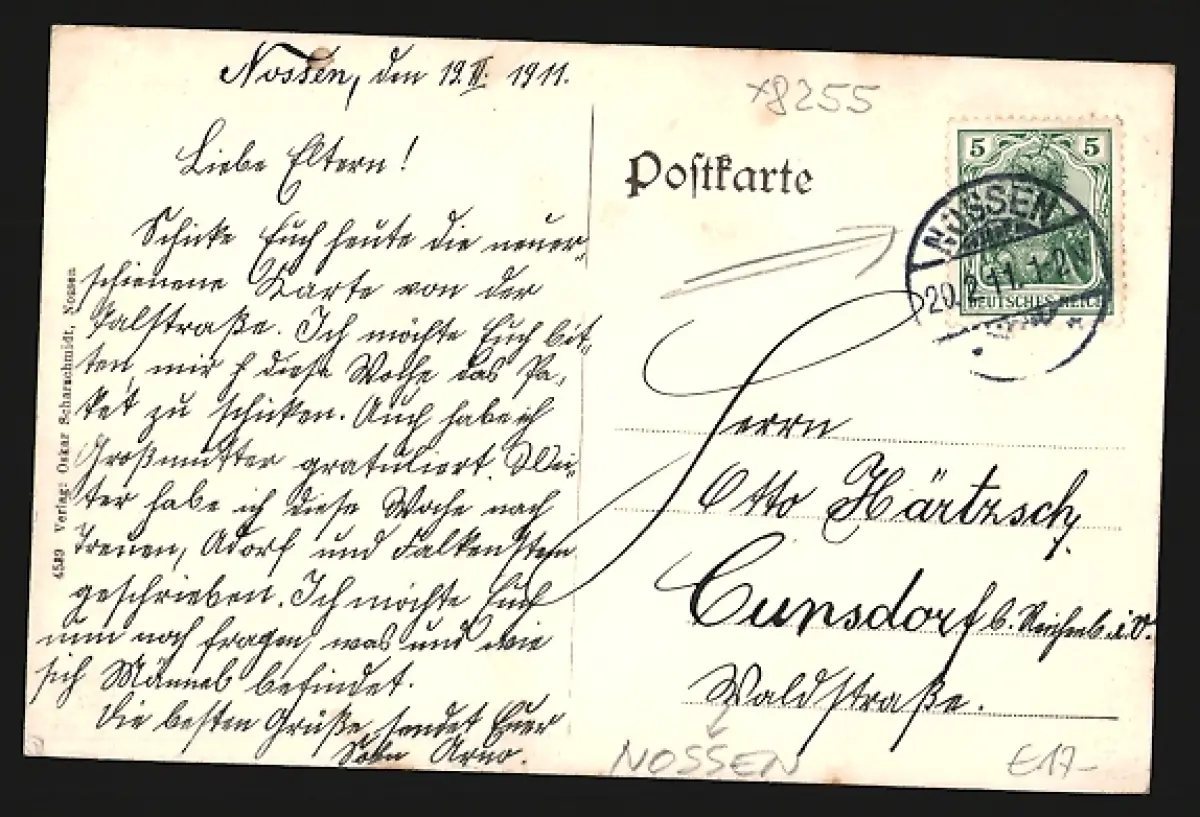 Nossen, den 19. VI. 1911.
Liebe Eltern!
Schicke Euch heute die neuer-
schienene Karte von der
Talstraße. Ich möchte Euch bit-
ten mir diese Woche das Pa-
ket zu schicken. Auch habe ich
Großmutter gratuliert. Wei-
ter habe ich diese Woche nach
Treuen, Adorf und Falkenstein
geschrieben. Ich möchte Euch
nun noch fragen, was und wie
sich Männel befindet.
Die besten Grüße sendet Euer
Sohn Arno.
4589 Verlag: Oskar Scharschmidt, Nossen
x8255
Postkarte
5 5
DEUTSCHES REICH
NOSSEN
20.6.11. 1-2 N
Herrn
Otto Härtzsch,
Cunsdorf b. Reichenb. i. V.
Waldstraße.
NOSSEN
€17-